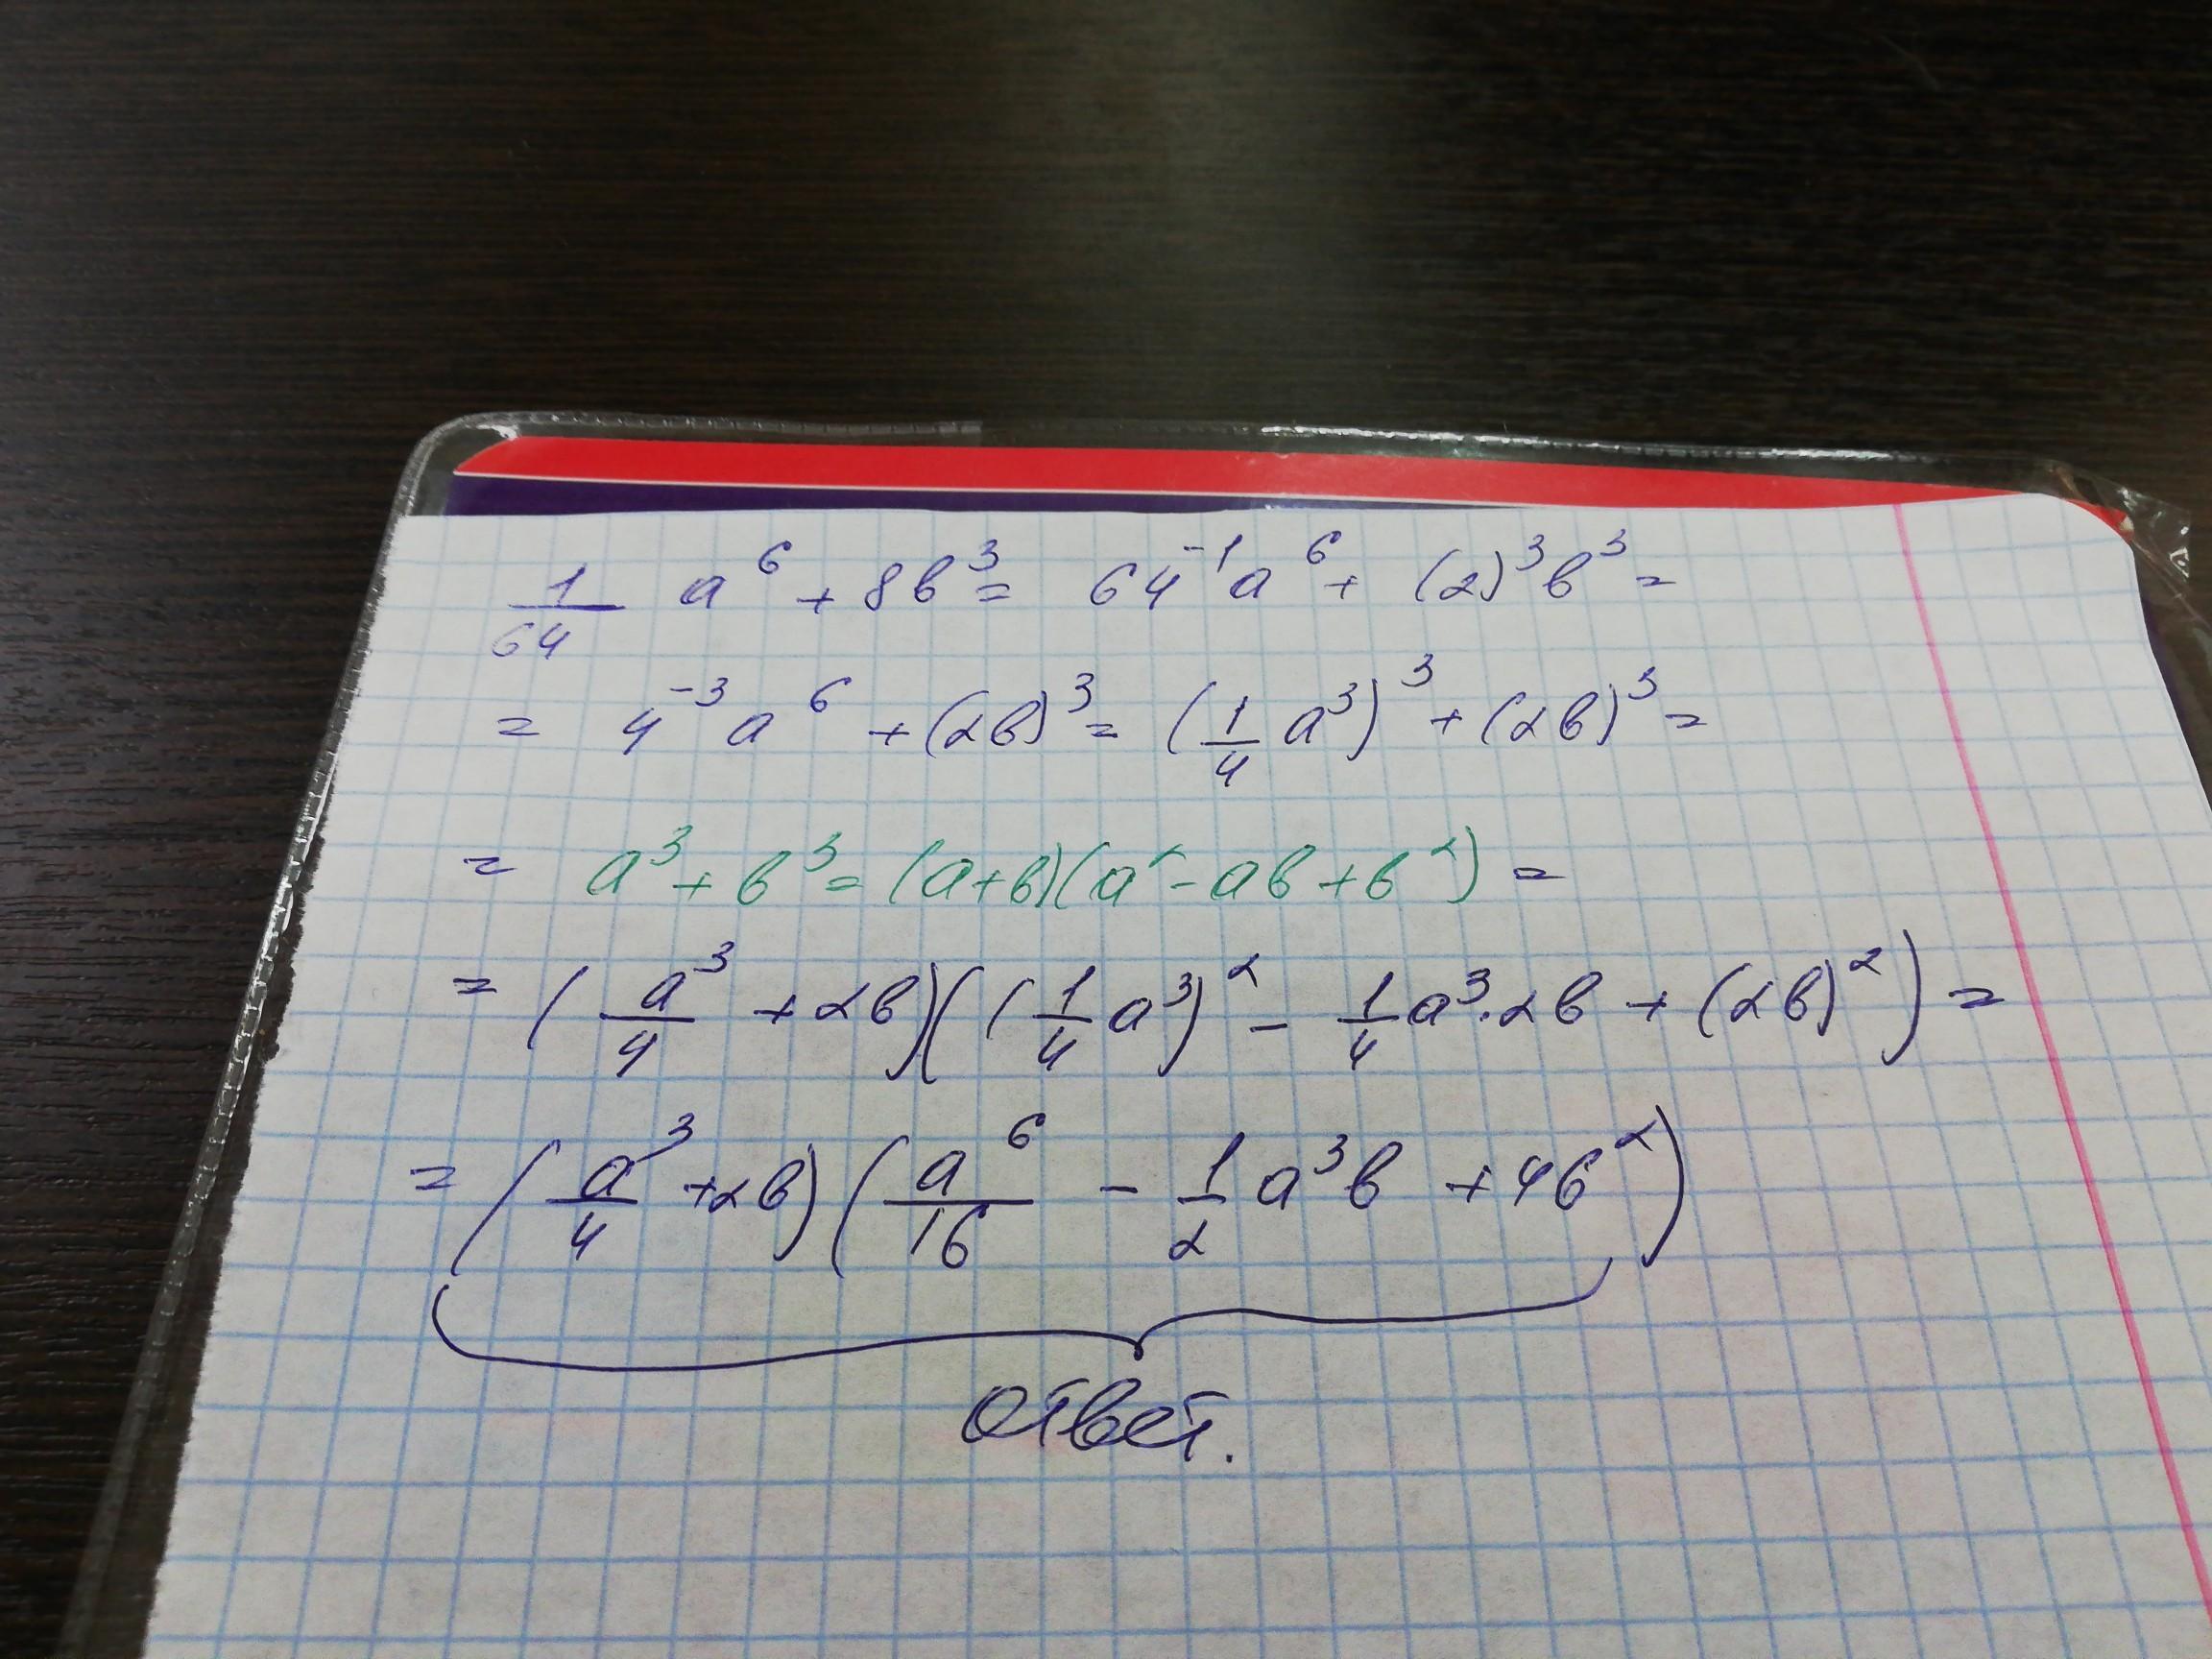 1/64 a⁶ + 8в³ = 64⁻¹a⁶ + (2)³в³ =
= 4⁻³a⁶ + (2в)³ = (1/4 a³)³ + (2в)³ =
= a³ + в³ = (a+в)(a² - aв + в²) =
= (a³/4 + 2в)((1/4 a³)² - 1/4 a³·2в + (2в)²) =
= (a³/4 + 2в)(a⁶/16 - 1/2 a³в + 4в²)
ответ.